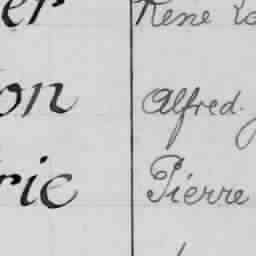 er René
on Alfred.
ric Pierre